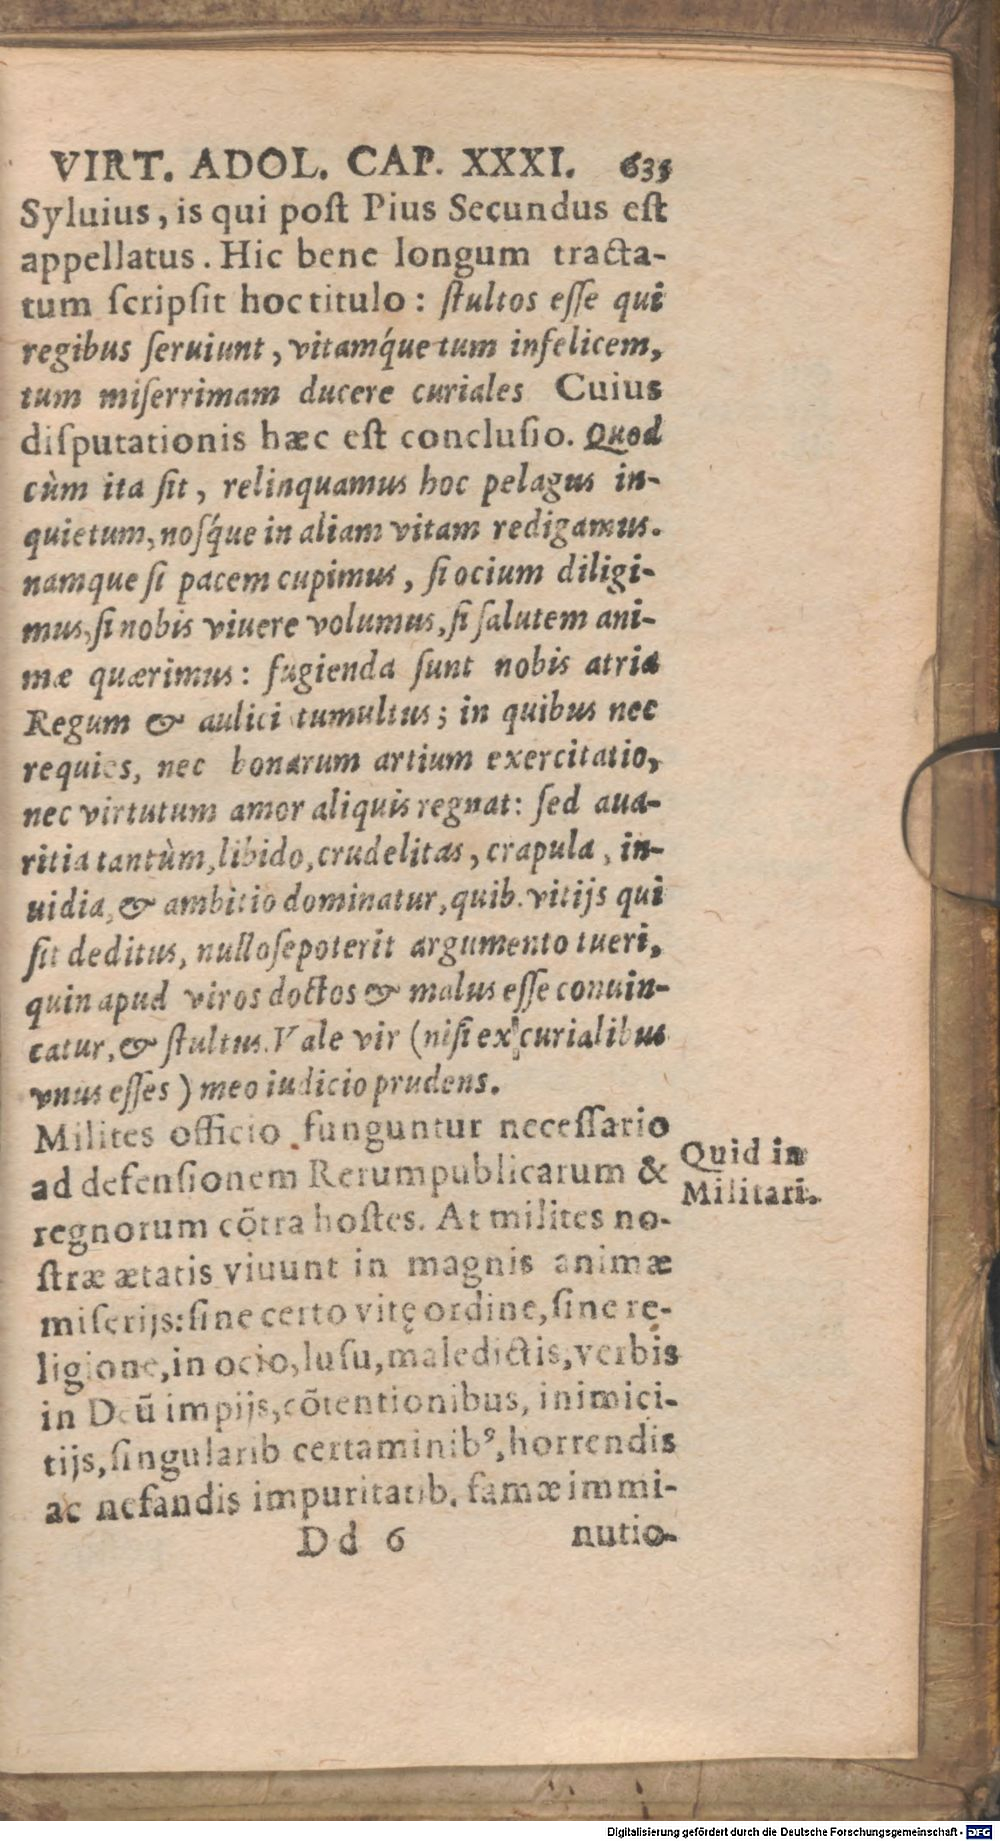 VIRT. ADOL. CAP. XXXI. 635
Syluius, is qui poſt Pius Secundus eſt
appellatus. Hic bene longum tracta-
tum ſcripſit hoc titulo: ſtultos eſſe qui
regibus ſeruiunt, vitamq́ue tum infelicem,
tum miſerrimam ducere curiales Cuius
diſputationis hæc eſt concluſio. Quod
cùm ita ſit, relinquamus hoc pelagus in-
quietum, noſq́ue in aliam vitam redigamus.
namque ſi pacem cupimus, ſi ocium diligi-
mus, ſi nobis viuere volumus, ſi ſalutem ani-
mæ quærimus: fugienda ſunt nobis atria
Regum & aulici tumultus; in quibus nec
requies, nec bonarum artium exercitatio,
nec virtutum amor aliquis regnat: ſed aua-
ritia tantùm, libido, crudelitas, crapula, in-
uidia, & ambitio dominatur, quib. vitijs qui
ſit deditus, nullo ſe poterit argumento tueri,
quin apud viros doctos & malus eſſe conuin-
catur, & ſtultus. Vale vir (niſi ex curialibus
vnus eſſes) meo iudicio prudens.
Milites officio funguntur neceſſario
ad defenſionem Rerumpublicarum &
regnorum cõtra hoſtes. At milites no-
ſtræ ætatis viuunt in magnis animæ
miſerijs: ſine certo vitę ordine, ſine re-
ligione, in ocio, luſu, maledictis, verbis
in Deũ impijs, cõtentionibus, inimici-
tijs, ſingularib certaminibꝰ, horrendis
ac nefandis impuritatib. famæ immi-
Dd 6 nutio-
Quid in
Militari.
Digitalisierung gefördert durch die Deutsche Forschungsgemeinschaft - DFG